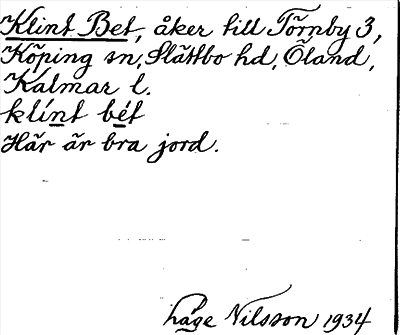 Klint Bet, åker till Törnby 3,
Köping sn, Slättbo hd, Öland,
Kalmar l.
klínt bét
Här är bra jord.
håge Nilsson 1934